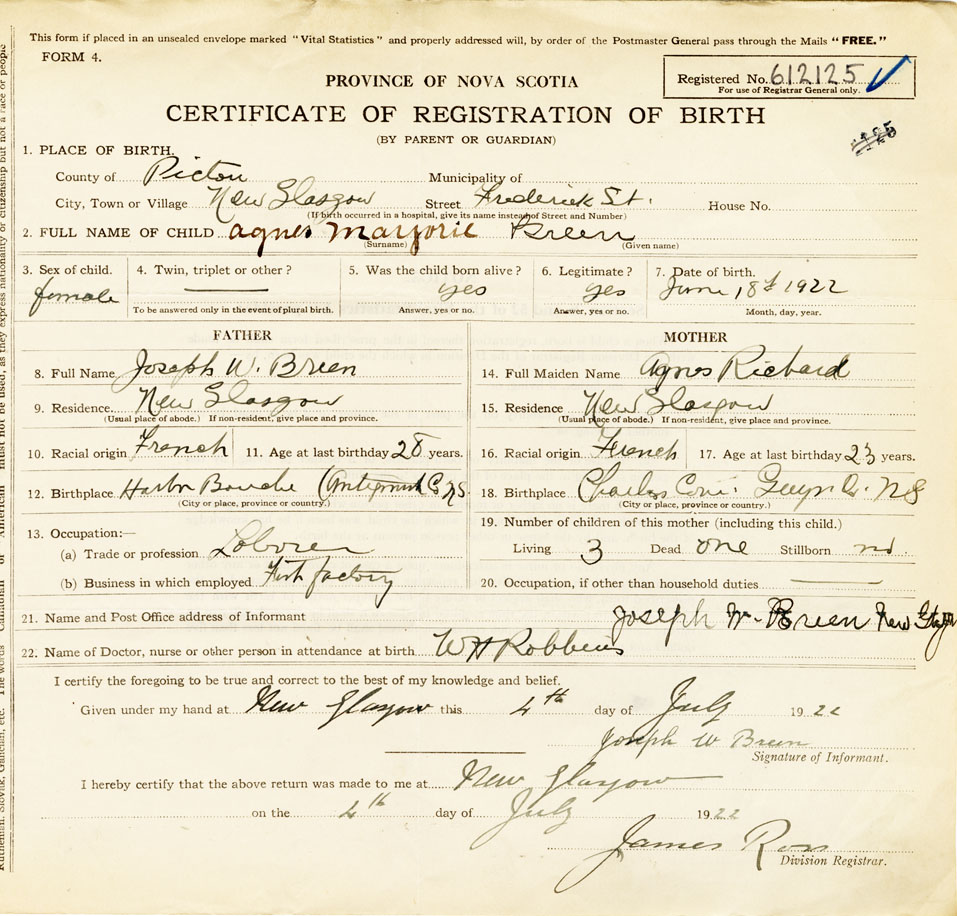 This form if placed in an unsealed envelope marked "Vital Statistics" and properly addressed will, by order of the Postmaster General pass through the Mails "FREE."
FORM 4.
PROVINCE OF NOVA SCOTIA
Registered No. 612125
For use of Registrar General only.
CERTIFICATE OF REGISTRATION OF BIRTH
(BY PARENT OR GUARDIAN)
1. PLACE OF BIRTH.
County of Pictou Municipality of
City, Town or Village New Glasgow Street Frederick St. House No.
(If birth occurred in a hospital, give its name instead of Street and Number)
2. FULL NAME OF CHILD Agnes Marjorie Breen
(Surname) (Given name)
3. Sex of child. 4. Twin, triplet or other? 5. Was the child born alive? 6. Legitimate? 7. Date of birth.
female yes yes June 18th 1922
To be answered only in the event of plural birth. Answer, yes or no. Answer, yes or no. Month, day, year.
FATHER MOTHER
8. Full Name Joseph W. Breen 14. Full Maiden Name Agnes Richard
9. Residence New Glasgow 15. Residence New Glasgow
(Usual place of abode.) If non-resident, give place and province. (Usual place of abode.) If non-resident, give place and province.
10. Racial origin French 11. Age at last birthday 28 years. 16. Racial origin French 17. Age at last birthday 23 years.
12. Birthplace Harbor Bouche (Antigonish Co NS 18. Birthplace Charlos Cove Guys Co. NS
(City or place, province or country.) (City or place, province or country.)
13. Occupation:— 19. Number of children of this mother (including this child.)
(a) Trade or profession Laborer Living 3 Dead one Stillborn no.
(b) Business in which employed factory 20. Occupation, if other than household duties
21. Name and Post Office address of Informant Joseph W. Breen New
22. Name of Doctor, nurse or other person in attendance at birth W H Robbins
I certify the foregoing to be true and correct to the best of my knowledge and belief.
Given under my hand at New Glasgow this 4th day of July 1922
Joseph W Breen
Signature of Informant.
I hereby certify that the above return was made to me at New Glasgow
on the 4th day of July 1922
James Ross
Division Registrar.